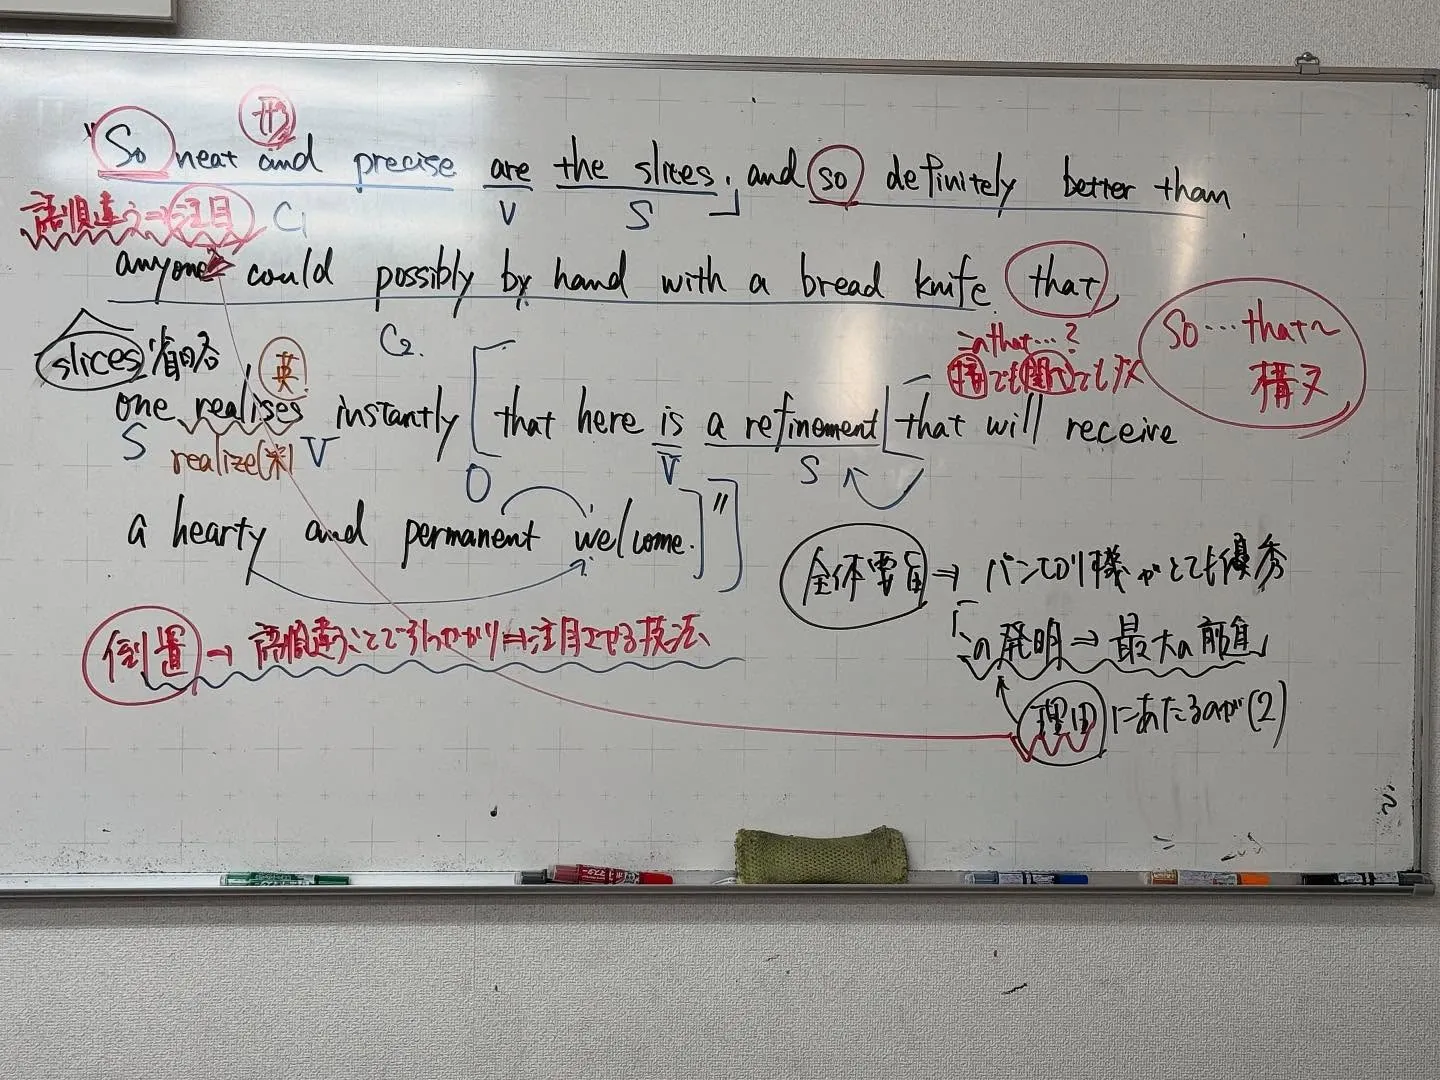 形
"So neat and precise are the slices, and so definitely better than
語順違う⇒注目 C₁ V S
anyone could possibly by hand with a bread knife that,
slices 省略 C₂.
英
このthat…?
接でも関代でもダメ
So…that~
構文
one realises instantly [that here is a refinement [that will receive
S realize(米) V O V S
a hearty and permanent welcome.]"]
全体要旨⇒パン切り機がとても優秀
倒置→語順違うことで引っかかり⇒注目させる技法
「この発明⇒最大の前進」
理由にあたるのが(2)